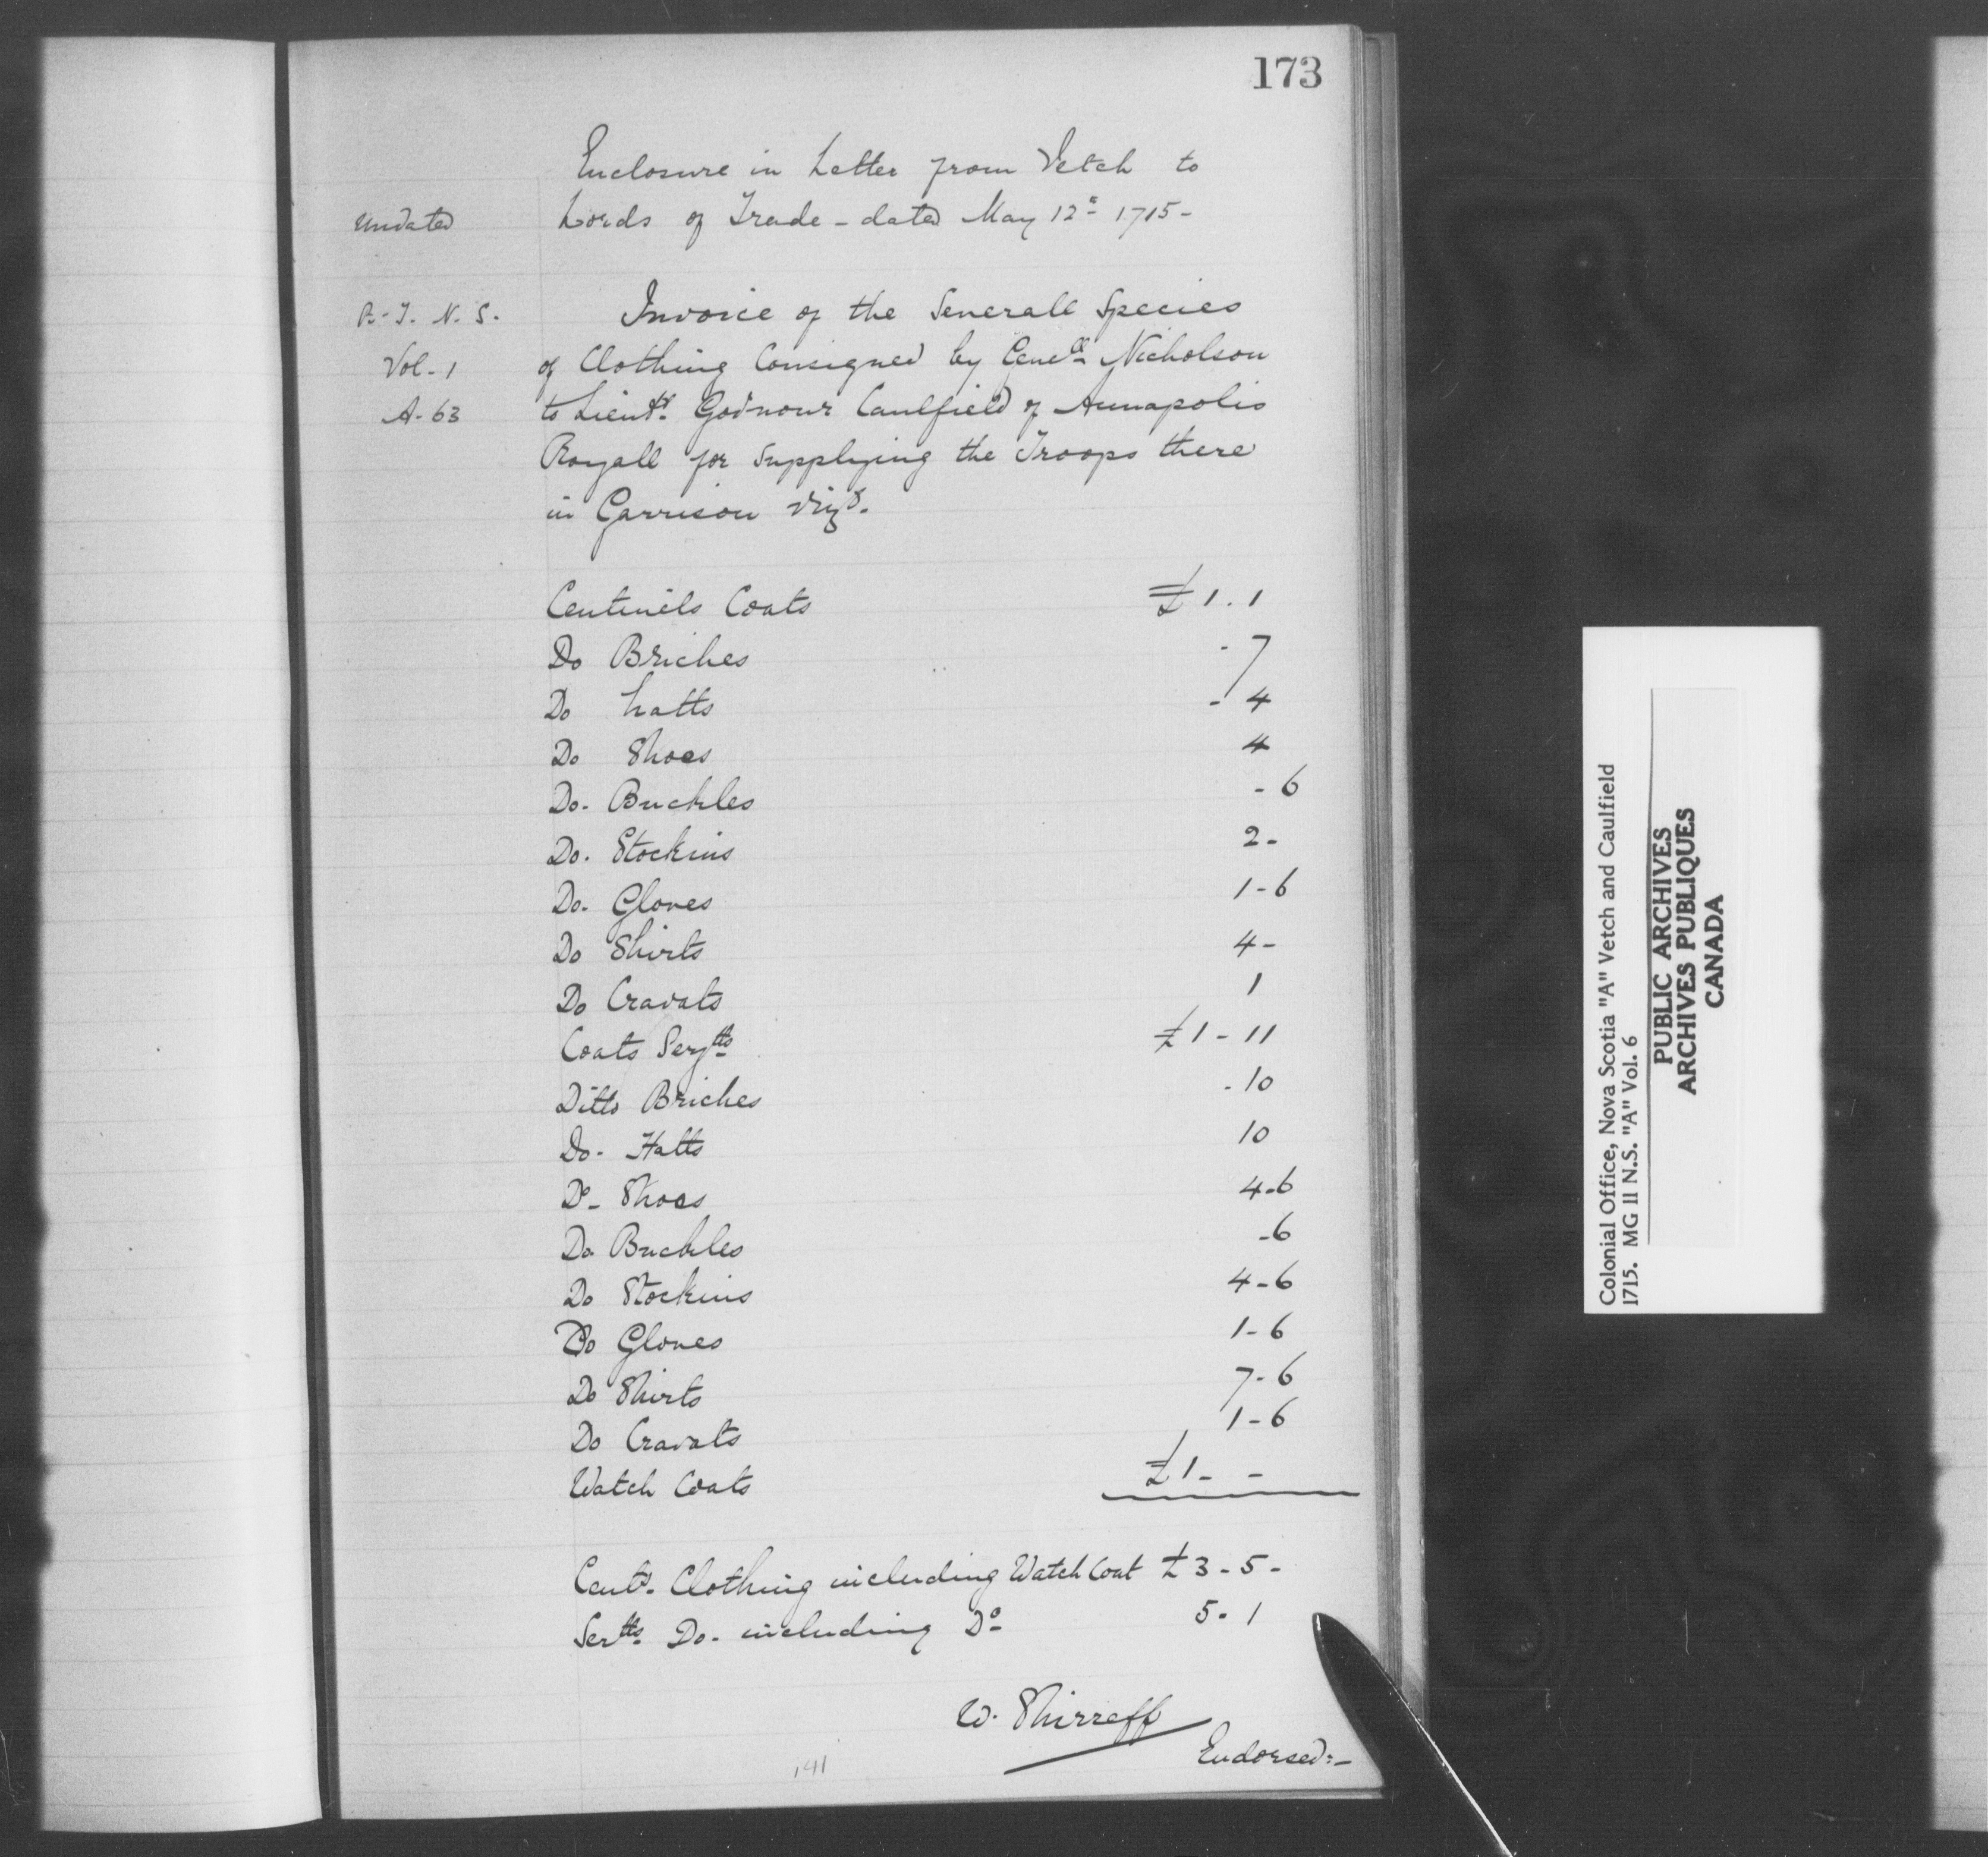 173
Enclosure in Letter from Vetch to
Undated Lords of Trade - dated May 12th 1715 -
B. T. N. S. Invoice of the Severall Species
Vol. 1 of Clothing Consigned by Genell Nicholson
A. 63 to Lieutt. Govnour Caulfield of Annapolis
Royall for Supplying the Troops there
in Garrison vizt.
Centinels Coats £1.1
Do Briches - 7
Do hatts - 4
Do Shoes 4
Do. Buckles - 6
Do. Stockins 2 -
Do. Gloves 1 - 6
Do Shirts 4 -
Do Cravats 1
Coats Sergtts £1 - 11
Ditto Briches - 10
Do - Hatts 10
Do - Shoes 4 - 6
Do Buckles - 6
Do Stockins 4 - 6
Do Gloves 1 - 6
Do Shirts 7 - 6
Do Cravats 1 - 6
Watch Coats £1 - -
Cents. Clothing including Watch Coat £3 - 5 -
Sertts. Do. including Do 5 - 1
W. Shirreff
Endorsed: -
141
Colonial Office, Nova Scotia "A" Vetch and Caulfield
1715. MG 11 N.S. "A" Vol. 6
PUBLIC ARCHIVES
ARCHIVES PUBLIQUES
CANADA